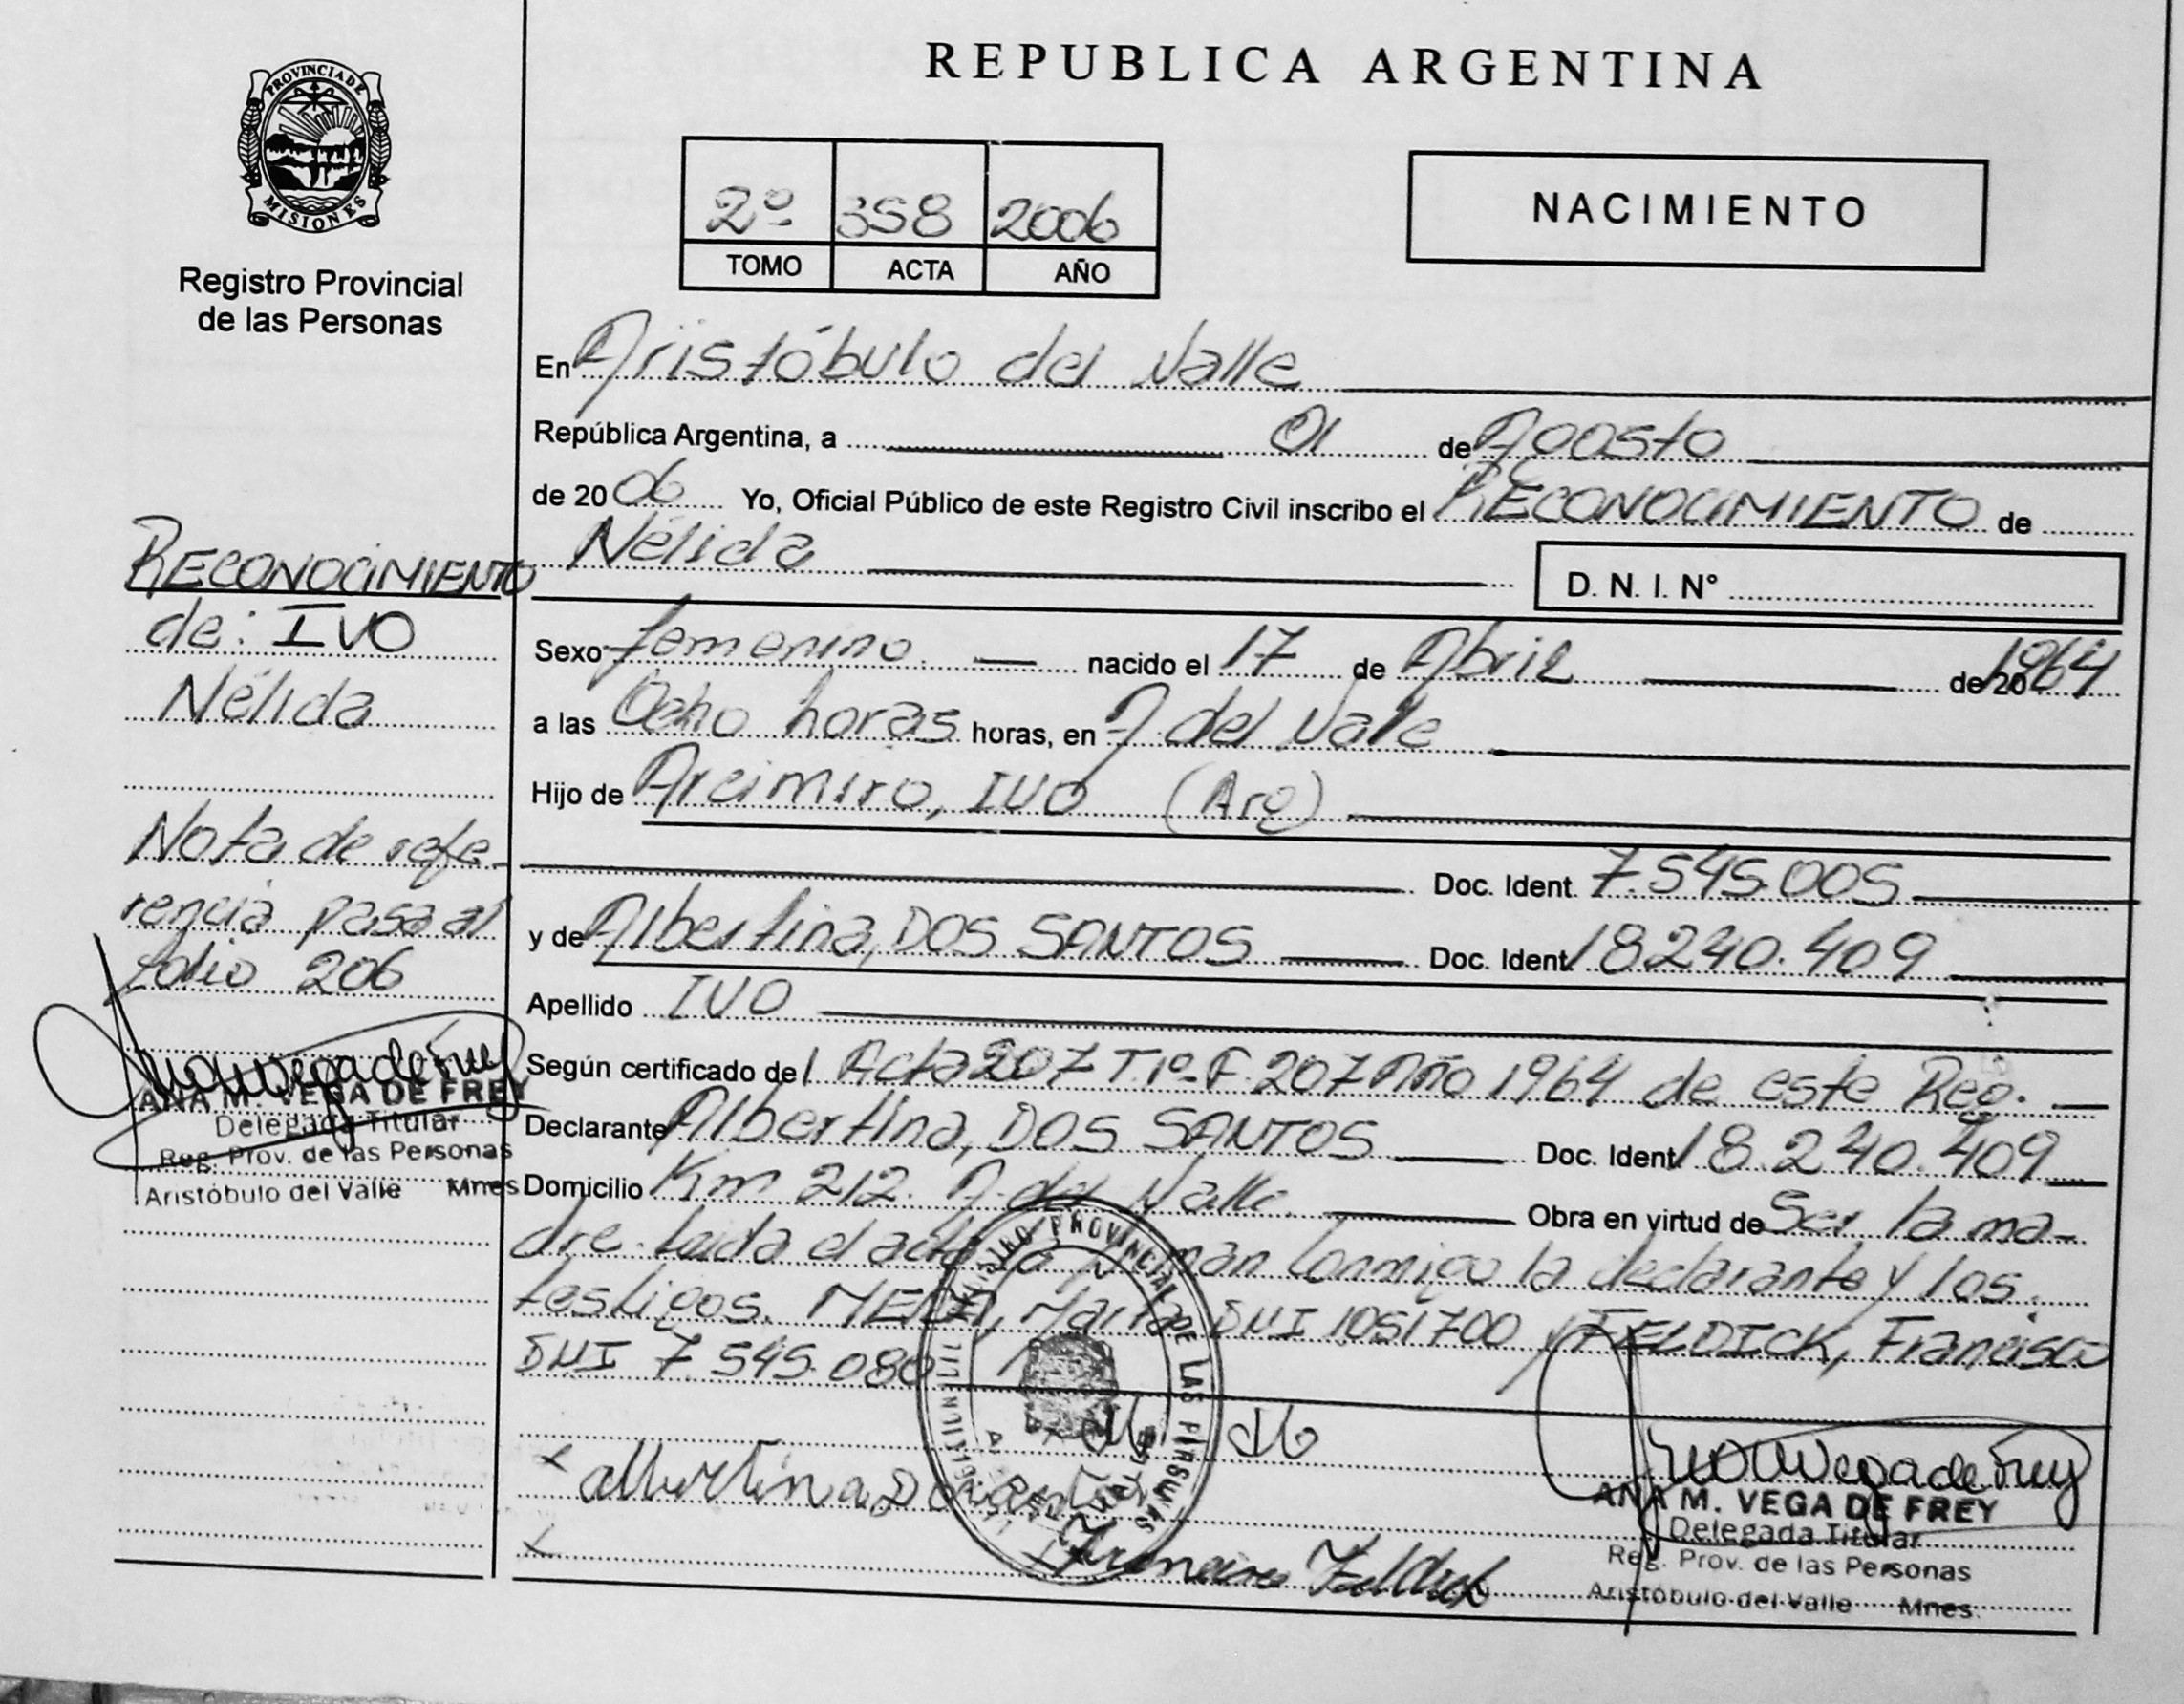 PROVINCIA DE
MISIONES
Registro Provincial
de las Personas
REPUBLICA ARGENTINA
2º 358 2006
TOMO ACTA AÑO
NACIMIENTO
En Aristóbulo del Valle
República Argentina, a 01 de Agosto
de 2006 Yo, Oficial Público de este Registro Civil inscribo el RECONOCIMIENTO de
Nélida
D. N. I. N°
Sexo femenino. nacido el 17 de Abril de 20 1964
a las Ocho horas horas, en A. del Valle
Hijo de Arcimiro, IVO (Arg)
Doc. Ident. 7.545.005
y de Albertina, DOS SANTOS Doc. Ident. 18240.409
Apellido IVO
Según certificado del Acta 207 Tº 1º F. 207 Año 1964 de este Reg.
Declarante Albertina, DOS SANTOS Doc. Ident. 18.240.409
Domicilio Km 212. A. del Valle. Obra en virtud de Ser la ma-
dre. Leida el acta la firman Conmigo la declarante y los
testigos. Marta DNI 1051700 y FELDICK, Francisco
DNI 7.545.080
RECONOCIMIENTO
de: IVO
Nélida
Nota de refe-
rencia pasa al
folio 206
ANA M. VEGA DE FREY
Delegada Titular
Reg. Prov. de las Personas
Aristóbulo del Valle Mnes
REGISTRO PROVINCIAL DE LAS PERSONAS
x Albertina Dos Santos
x Francisco Feldick
ANA M. VEGA DE FREY
Delegada Titular
Reg. Prov. de las Personas
Aristóbulo del Valle Mnes.